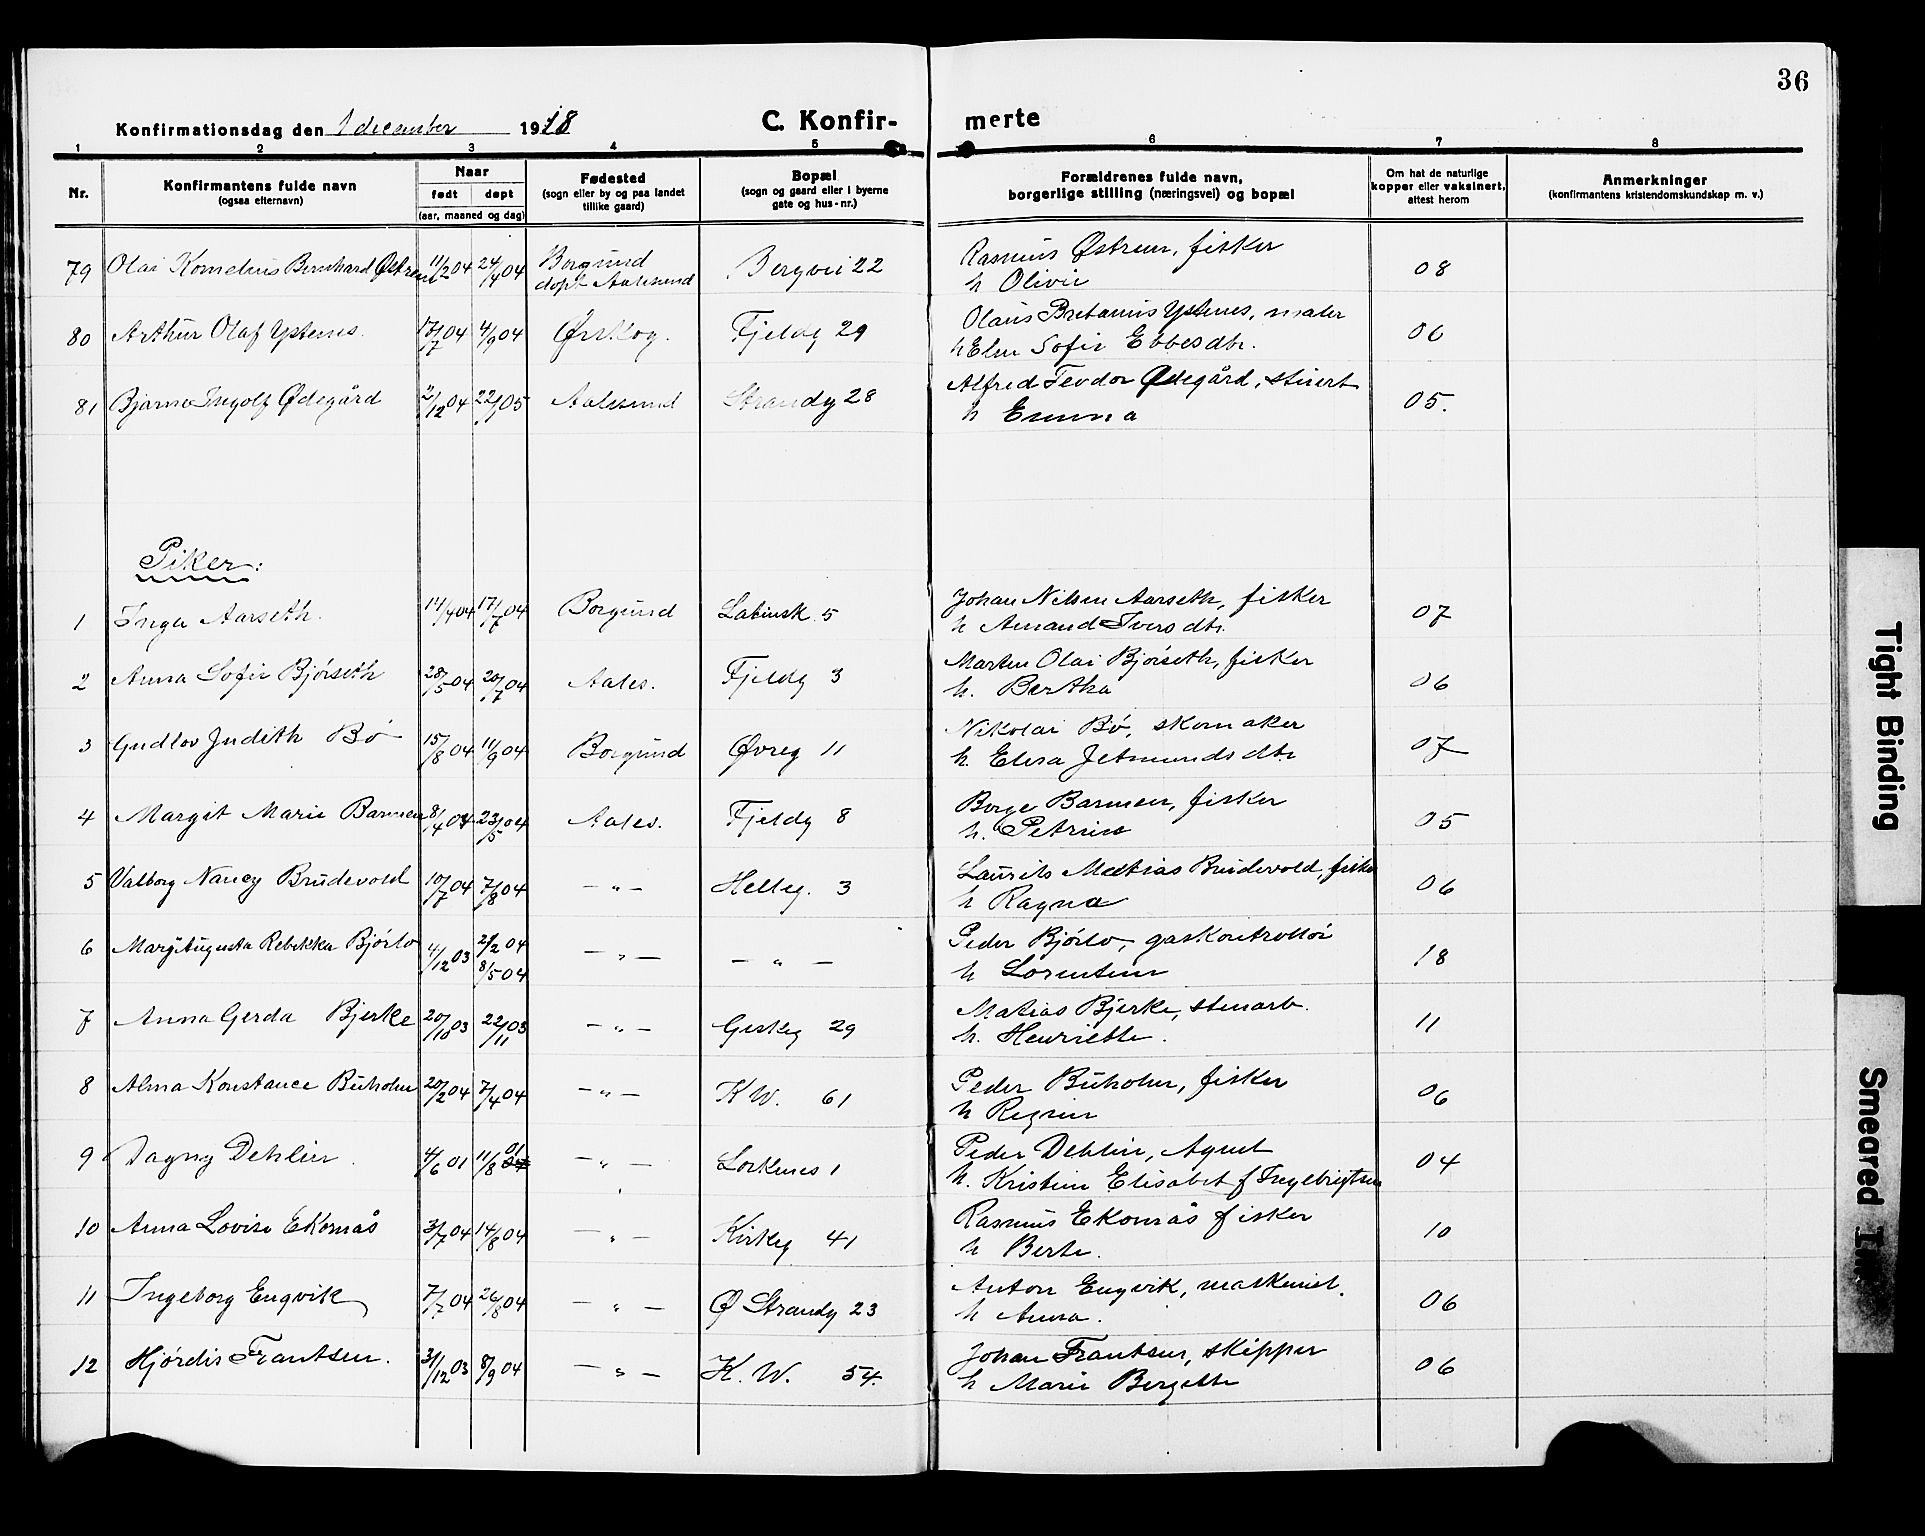 36
Konfirmationsdag den 1 december 1918
C. Konfirmerte
1 2 3 4 5 6 7 8
Nr.
Konfirmantens fulde navn
(ogsaa efternavn)
Naar
født døpt
(aar, maaned og dag)
Fødested
(sogn eller by og paa landet
tillike gaard)
Bopæl
(sogn og gaard eller i byerne
gate og hus-nr.)
Forældrenes fulde navn,
borgerlige stilling (næringsvei) og bopæl
Om hat de naturlige
kopper eller vaksinert,
attest herom
Anmerkninger
(konfirmantens kristendomskundskap m. v.)
79 Olai Kornelius Bernhard Østrem 11/2 04 24/4 04 Borgund Bergvei 22 Rasmus Østrem, fisker 08
døpt Aalesund h Olivie
80 Arthur Olaf Ystenes. 17/7 04 4/9 04 Ørskog. Fjeldg 29 Olaus Bretanus Ystenes, maler 06
h Elen Sofie Ebbesdtr.
81 Bjarne Ingolf Ødegård 2/12 04 22/1 05 Aalesund Strandg 28 Alfred Teodor Ødegård, stuert 05.
h Emma
Piker:
1 Inga Aarseth. 14/4 04 17/7 04 Borgund Latinsk. 5 Johan Nilsen Aarseth, fisker 07
h Amand Iversdtr.
2 Anna Sofie Bjørseth 28/5 04 20/7 04 Aales. Fjeldg 3 Marten Olai Bjørseth, fisker 06
h. Bertha
3 Gudlov Judith Bø 15/8 04 11/9 04 Borgund Øvreg 11 Nikolai Bø, skomaker 07
h. Elesa Jetmundsdtr
4 Margit Marie Barmen 8/4 04 23/5 04 Aales. Fjeldg 8 Borge Barmen, fisker 05
h. Petrine
5 Valborg Nancy Brudevold 10/7 04 7/8 04 — " — Helleg. 3 Laurits Mathias Brudevold, fisker 06
h Ragna
6 Margit Augusta Rebekka Bjørlo 4/12 03 21/2 04 — " — — " — Peder Bjørlo, gaskontrollør 18
8/5 04 h Lorentine
7 Anna Gerda Bjerke 20/10 03 22/11 03 — " — Giskeg 29 Matias Bjerke, stenarb. 11
h. Henriette.
8 Alma Konstance Buholm 20/2 04 7/4 04 — " — K W. 61 Peder Buholm, fisker 06
h Regine
9 Dagny Dehlin. 4/6 01 11/8 01 — " — Lorkenes 1 Peder Dehlin, Agent 04
h. Kristine Elisabet f Ingebrigtsen
10 Anna Lovise Ekornås 3/7 04 14/8 04 — " — Kirkeg 41 Rasmus Ekornås fisker 10
h Berte.
11 Ingeborg Engvik 7/7 04 26/8 04 — " — Ø Strandg 23 Anton Engvik, maskinist. 06
h Anna.
12 Hjørdis Frantsen. 31/12 03 8/9 04 — " — K. W. 54. Johan Frantsen, skipper 06
h Marie Bergette
Tight Binding
Smeared Ink